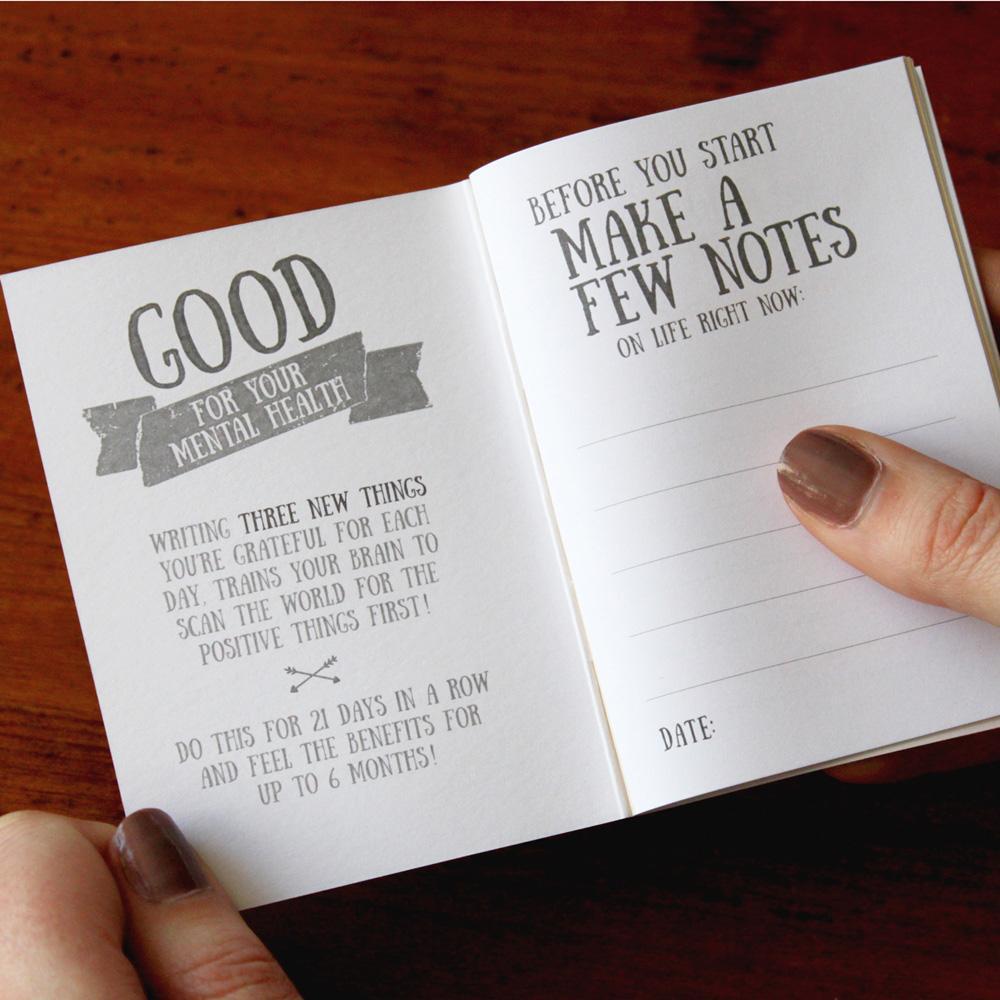 GOOD
FOR YOUR
MENTAL HEALTH
WRITING THREE NEW THINGS
YOU'RE GRATEFUL FOR EACH
DAY, TRAINS YOUR BRAIN TO
SCAN THE WORLD FOR THE
POSITIVE THINGS FIRST!
DO THIS FOR 21 DAYS IN A ROW
AND FEEL THE BENEFITS FOR
UP TO 6 MONTHS!
BEFORE YOU START
MAKE A
FEW NOTES
ON LIFE RIGHT NOW:
DATE: